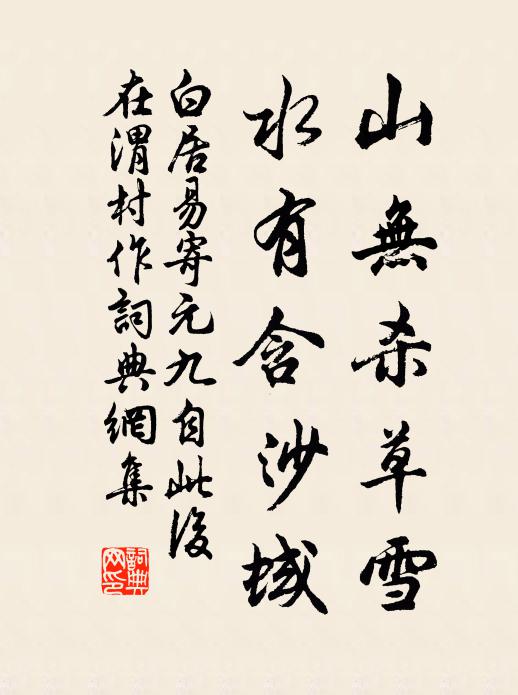 山無杀草雪
水有含沙域
白居易寄元九自此後
在渭村作詞典網集
詞典
网印